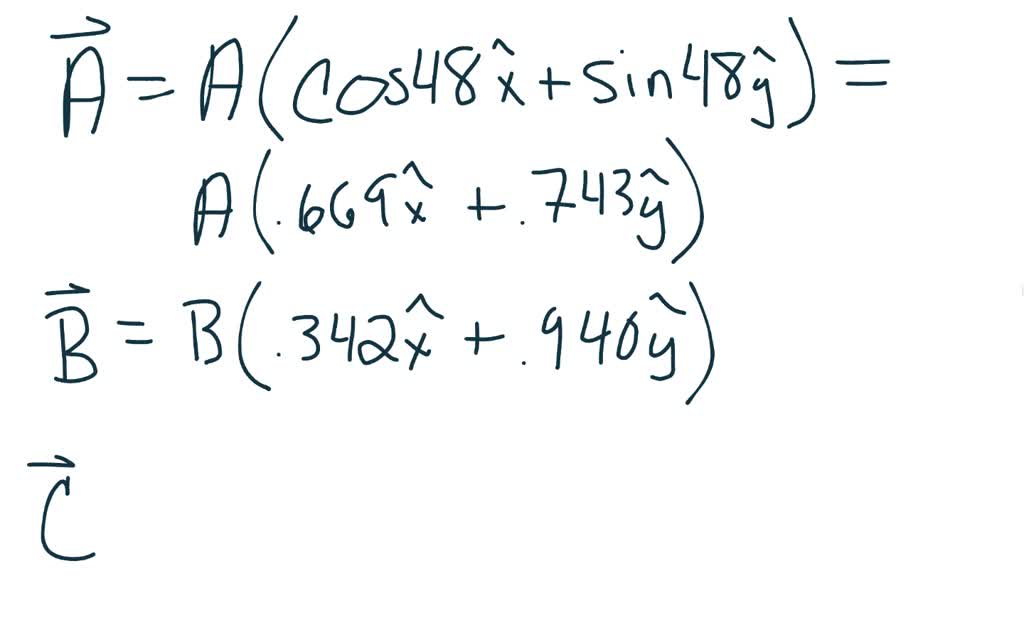 A⃗ = A(cos48x̂ + sin48ŷ) =
A(.669x̂ + .743ŷ)
B⃗ = B(.342x̂ + .940ŷ)
C⃗